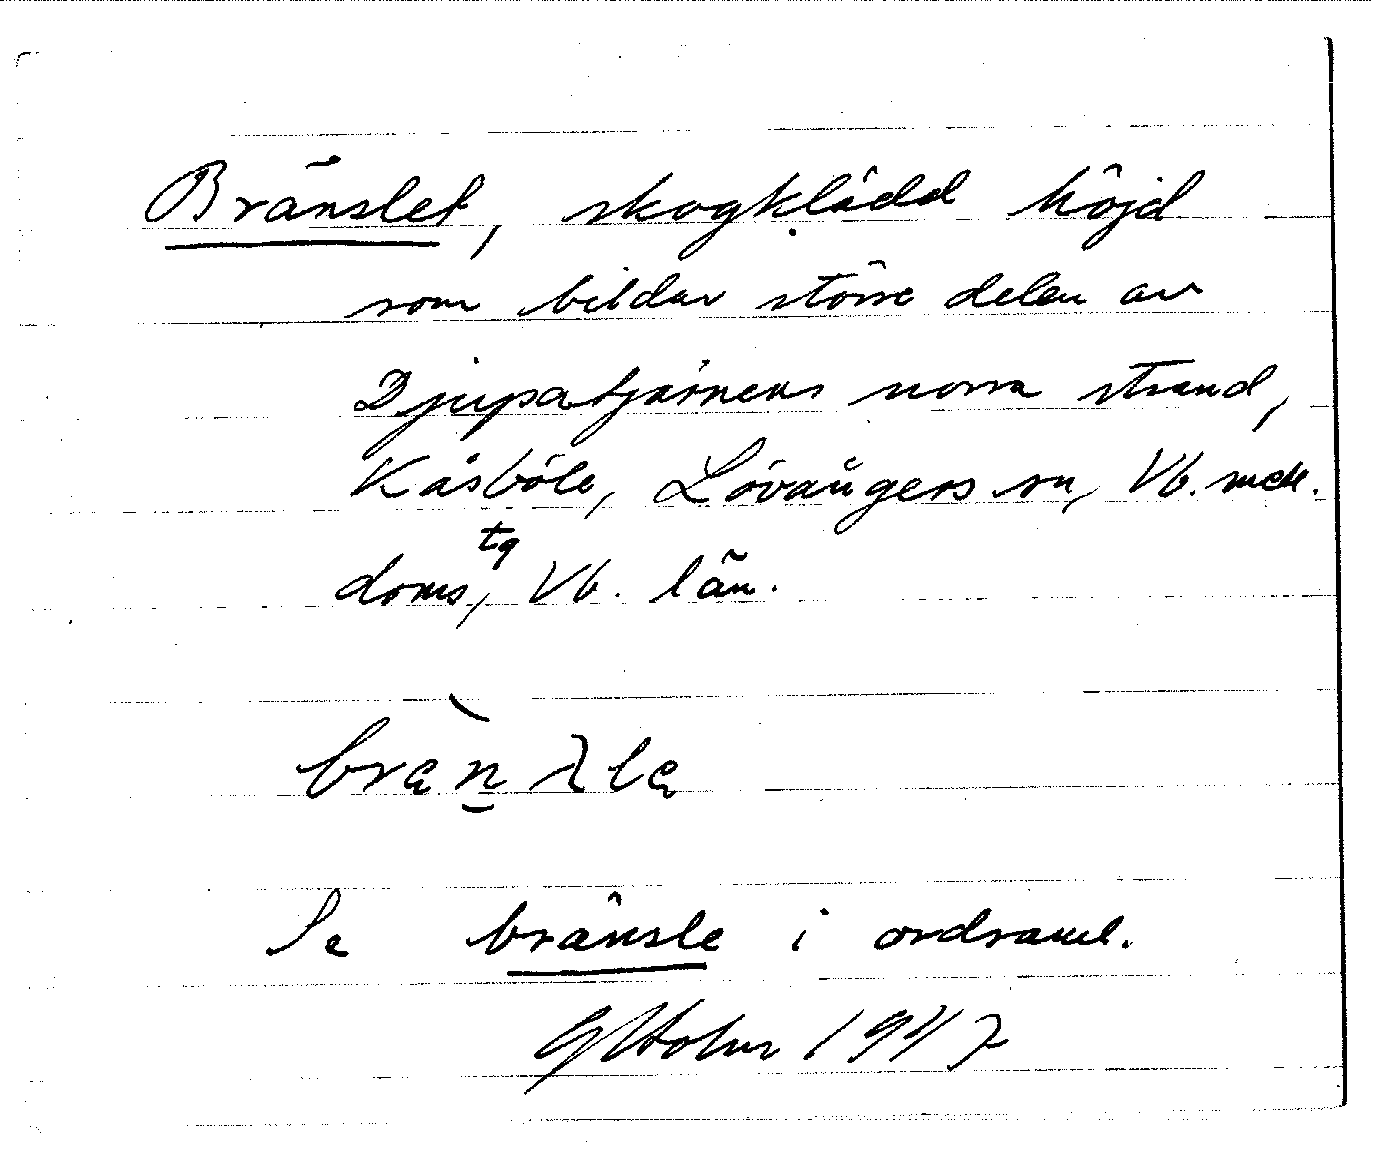 Bränslet, skogklädd höjd
som bildar större delen av
Djupatjärnens norra strand,
Kåsböle, Lövångers sn, Vb.
doms, tg Vb. län.
Se bränsle i ordsaml.
1947